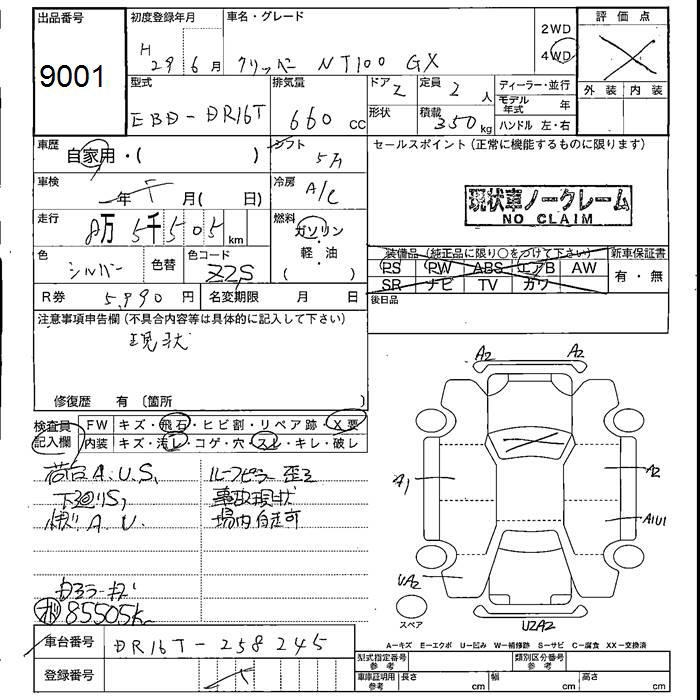 出品番号
9001
初度登録年月
H 29年6月
車名・グレード
クリッパー NT100 GX
2WD
4WD
評価点
外装 内装
型式
EBD-DR16T
排気量
660 cc
ドア 2
形状
定員 2 人
積載 350 kg
ディーラー・並行
モデル年式 年
ハンドル 左・右
車歴
自家用・( )
シフト
5万
セールスポイント(正常に機能するものに限ります)
車検
年 月( 日)
冷房
A/C
現状車ノークレーム
NO CLAIM
走行
8万5千505 km
燃料
ガソリン・軽・油
( )
色
シルバー
色替
色コード
Z2S
装備品(純正品に限り○をつけて下さい)
PS PW ABS エアB AW
SR ナビ TV カワ
新車保証書
有・無
R券 5,990円
名変期限 月 日
後日品
注意事項申告欄(不具合内容等は具体的に記入して下さい)
現状
修復歴 有〔箇所 〕
検査員記入欄
FW キズ・飛石・ヒビ割・リペア跡・X要
内装 キズ・汚レ・コゲ・穴・スレ・キレ・破レ
荷台A.U.S,
下廻りS,
A.U.
ルーフピラー歪ミ
事故現状
場内自走可
85505K
A2 A2
A1
A2
A1U1
UA2
U2A2
スペア
A-キズ E-エクボ U-凹み W-補修跡 S-サビ C-腐食 XX-交換済
車台番号
DR16T-258245
登録番号
型式指定番号参考
類別区分番号参考
車庫証明用参考
長さ cm
幅 cm
高さ cm